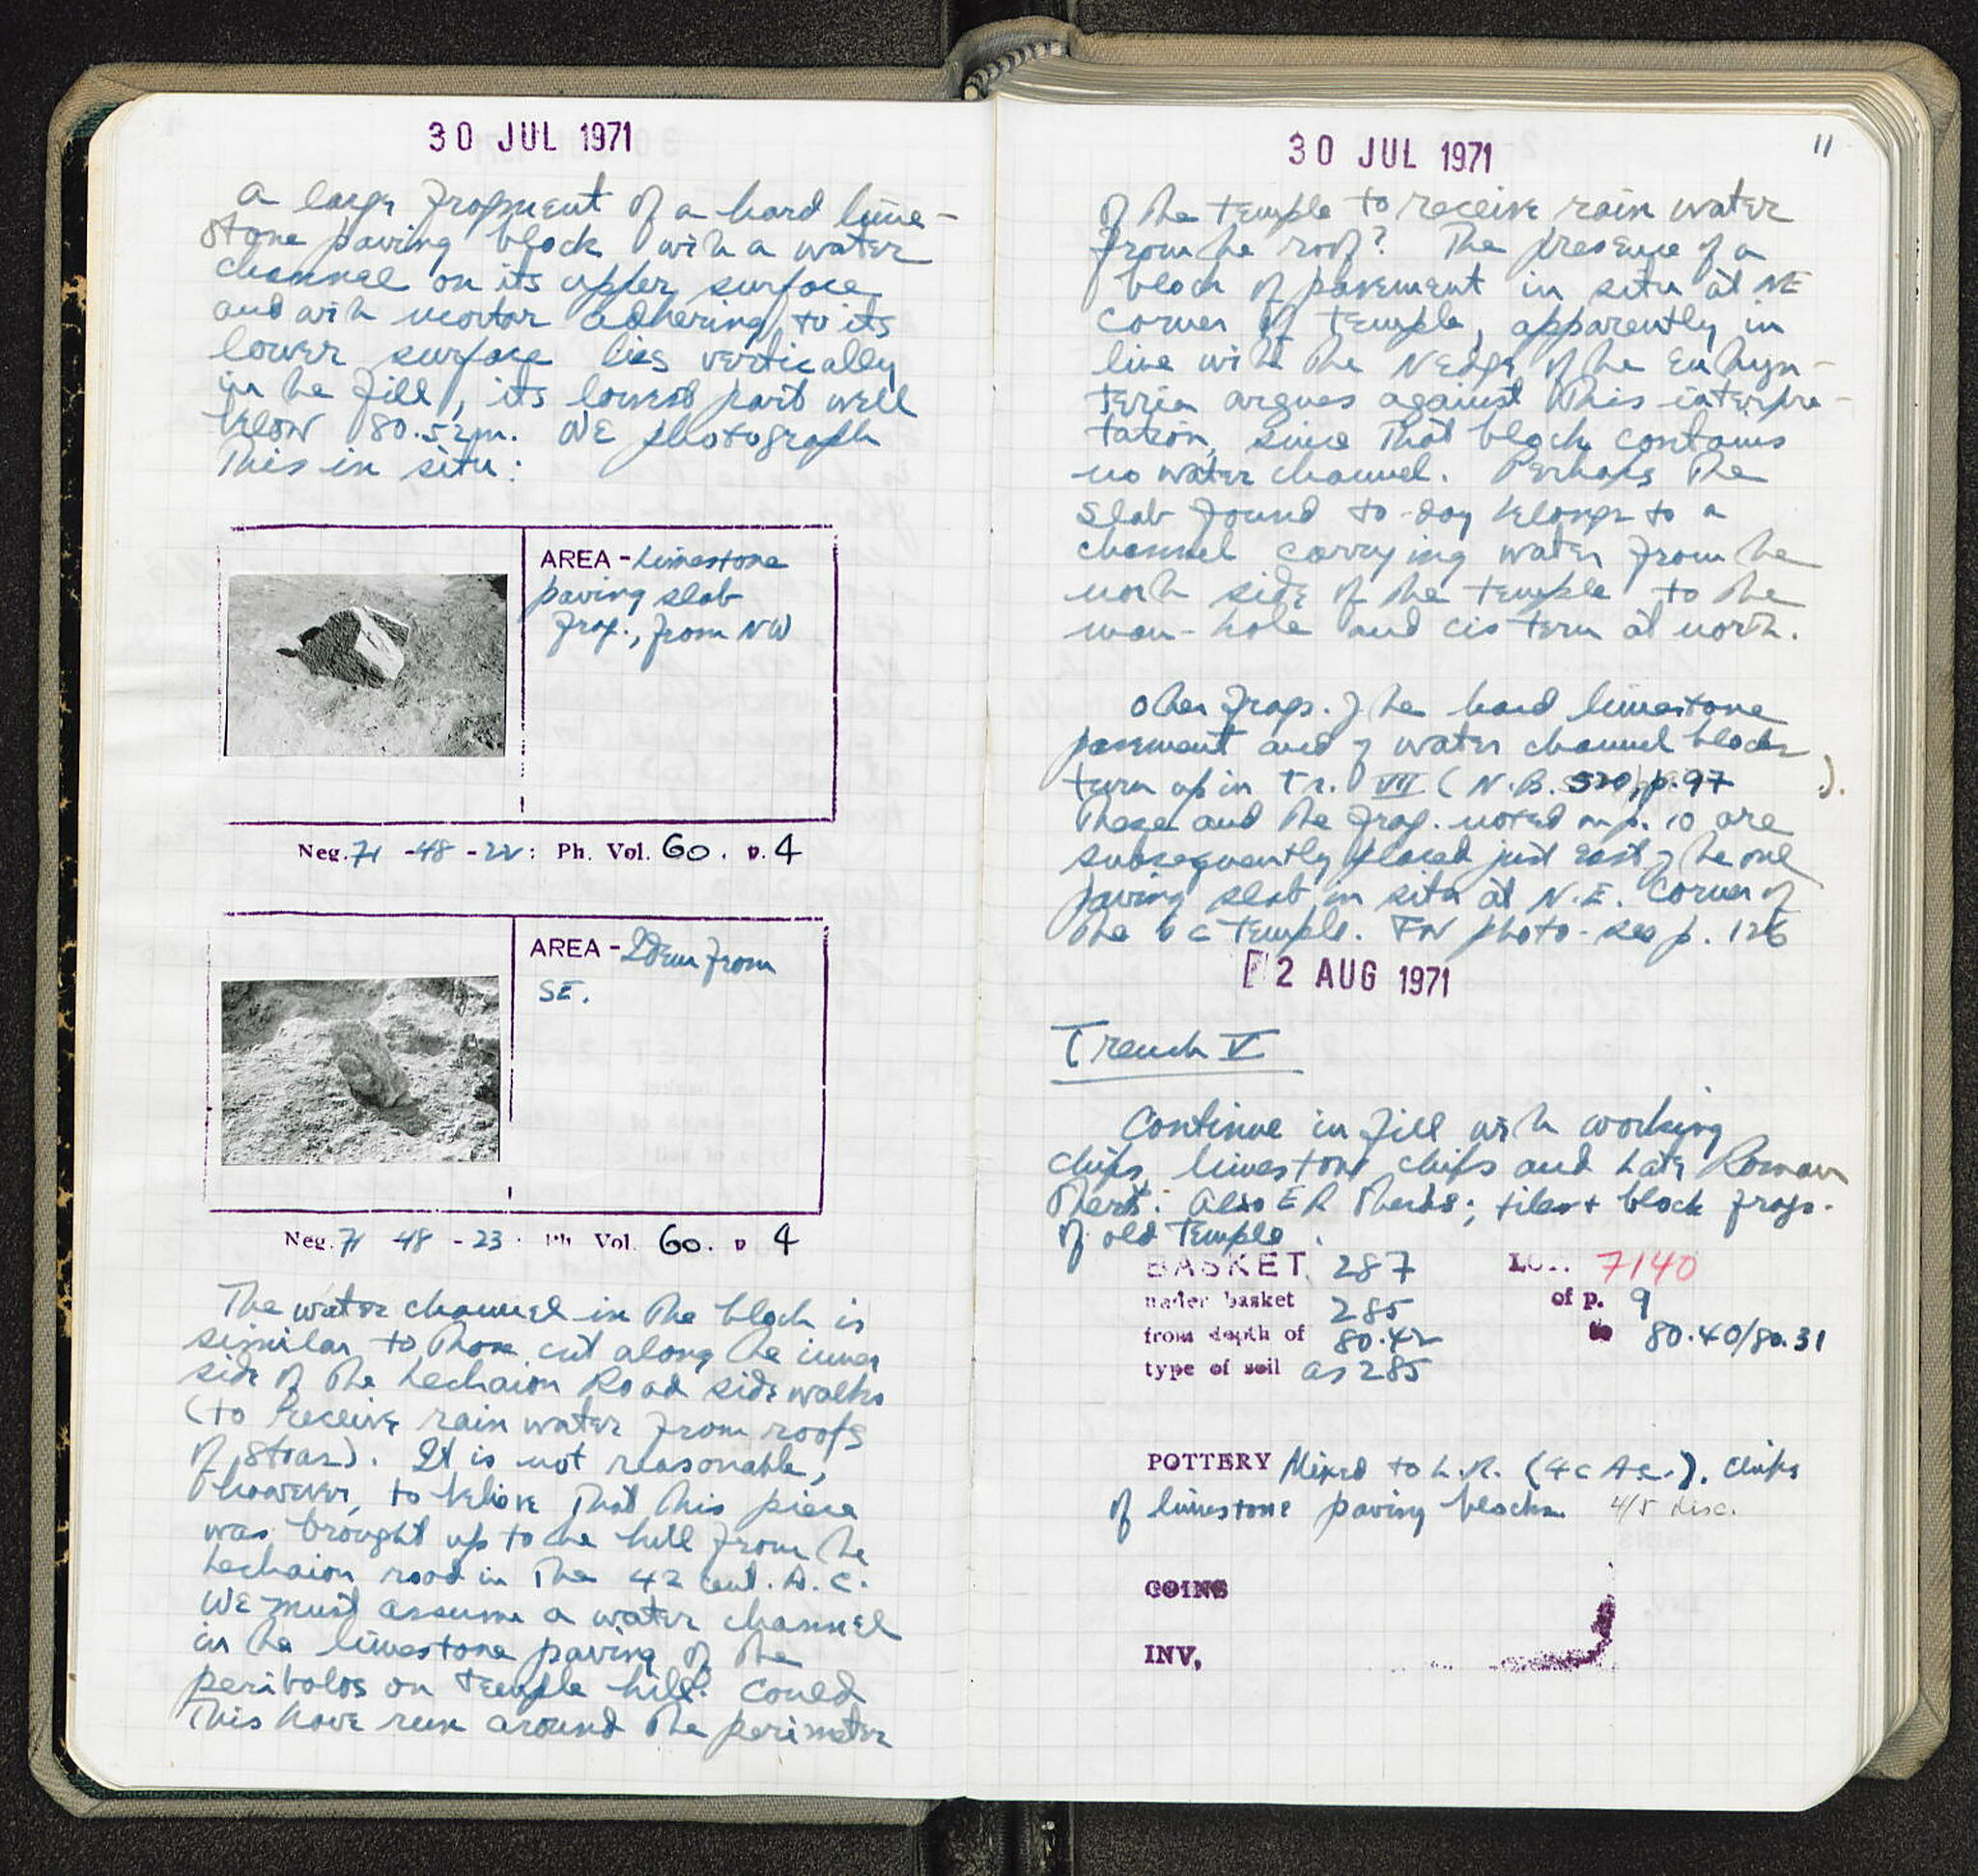 30 JUL 1971
A large fragment of a hard lime-
stone paving block with a water
channel on its upper surface
and with mortar adhering to its
lower surface lies vertically
in the fill, its lowest part well
below 80.52m. We photograph
this in situ:
AREA - Limestone
paving slab
frag., from NW
Neg. 71-48-22: Ph. Vol. 60. p. 4
AREA - Idem from
SE.
Neg. 71 48-23: Ph. Vol. 60. p 4
The water channel in the block is
similar to those cut along the inner
side of the Lechaion Road sidewalks
(to receive rain water from roofs
of stoas). It is not reasonable,
however, to believe that this piece
was brought up to the hill from the
Lechaion road in the 4th cent. A.C.
We must assume a water channel
in the limestone paving of the
peribolos on temple hill. Could
this have run around the perimeter
30 JUL 1971
11
of the temple to receive rain water
from the roof? The presence of a
block of pavement in situ at NE
corner of temple, apparently in
line with the N edge of the euthyn-
teria argues against this interpre-
tation, since that block contains
no water channel. Perhaps the
slab found to-day belongs to a
channel carrying water from the
north side of the temple to the
man-hole and cistern at north.
Other frags. of the hard limestone
pavement and of water channel blocks
turn up in Tr. VII (N.B. 520, p. 97).
These and the frag. noted on p. 10 are
subsequently placed just east of the one
paving slab in situ at N.E. corner of
the 6 c temple. For photo - see p. 126
2 AUG 1971
Trench V
Continue in fill with working
chips, limestone chips and Late Roman
sherds. Also ER sherds; tiles + block frags.
of old temple.
BASKET 287 LOT. 7140
under basket 285 of p. 9
from depth of 80.42 to 80.40/80.31
type of soil as 285
POTTERY Mixed to L.R. (4c A.C.). Chips
of limestone paving blocks. 4/5 disc.
COINS
INV.